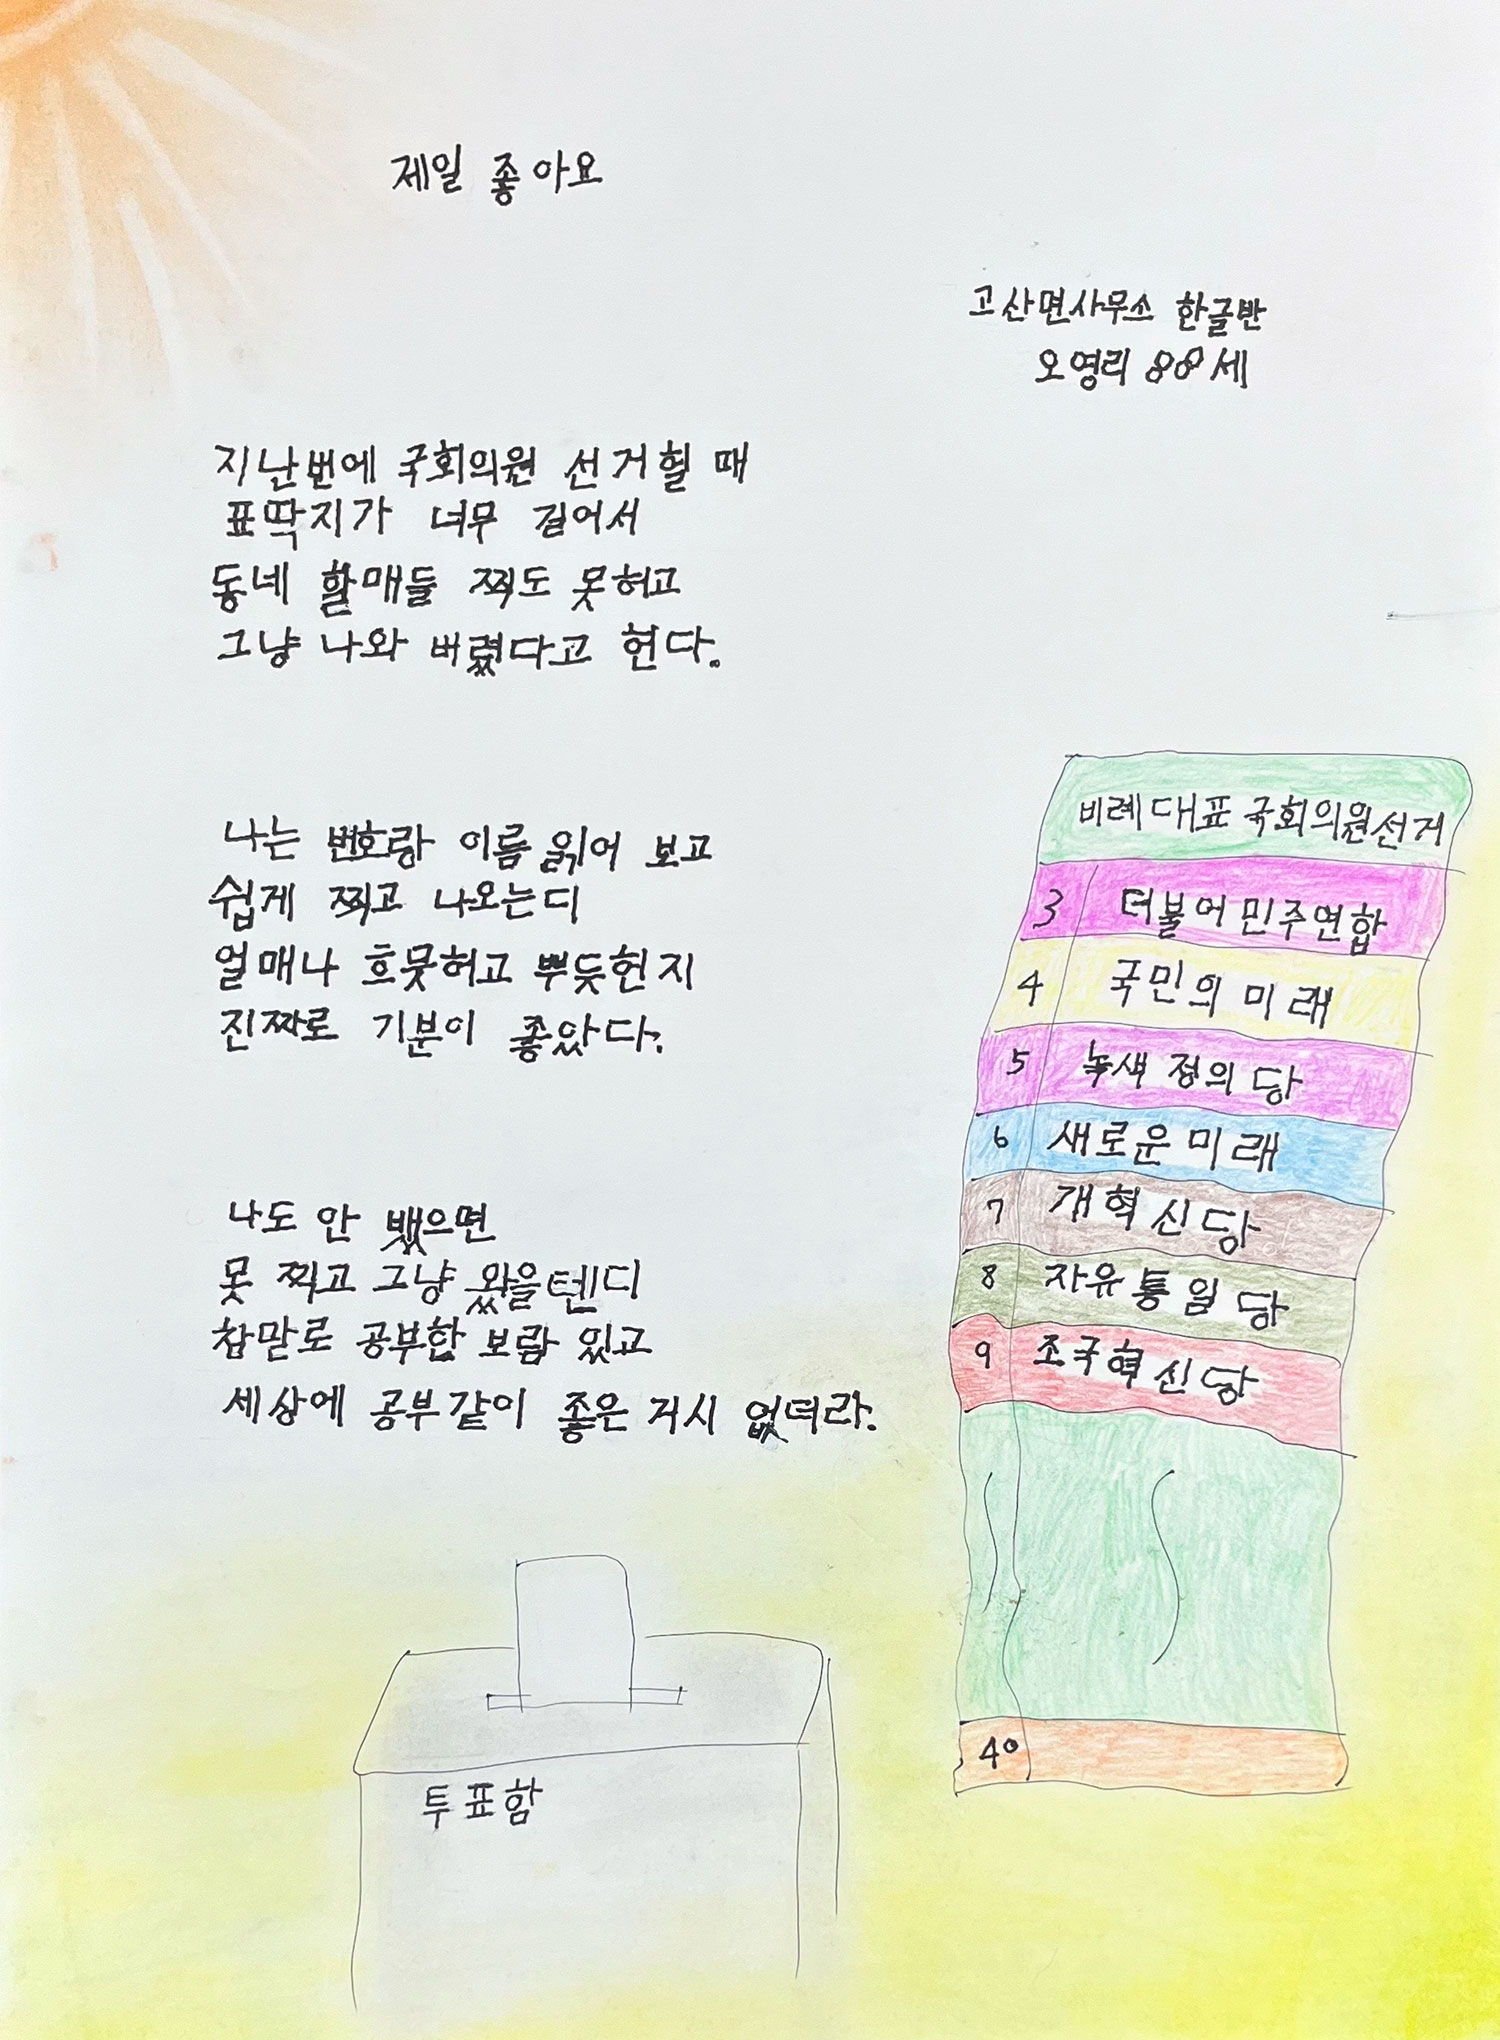 제일 좋아요
고산면사무소 한글반
오영리 88세
지난번에 국회의원 선거헐 때
표딱지가 너무 길어서
동네 할매들 찍도 못허고
그냥 나와 버렸다고 헌다.
나는 번호랑 이름 읽어 보고
쉽게 찍고 나오는디
얼매나 흐뭇허고 뿌듯헌지
진짜로 기분이 좋았다.
나도 안 뱄으면
못 찍고 그냥 왔을텐디
참말로 공부한 보람 있고
세상에 공부같이 좋은 거시 없더라.
비례대표 국회의원선거
3 더불어민주연합
4 국민의미래
5 녹색정의당
6 새로운미래
7 개혁신당
8 자유통일당
9 조국혁신당
40
투표함